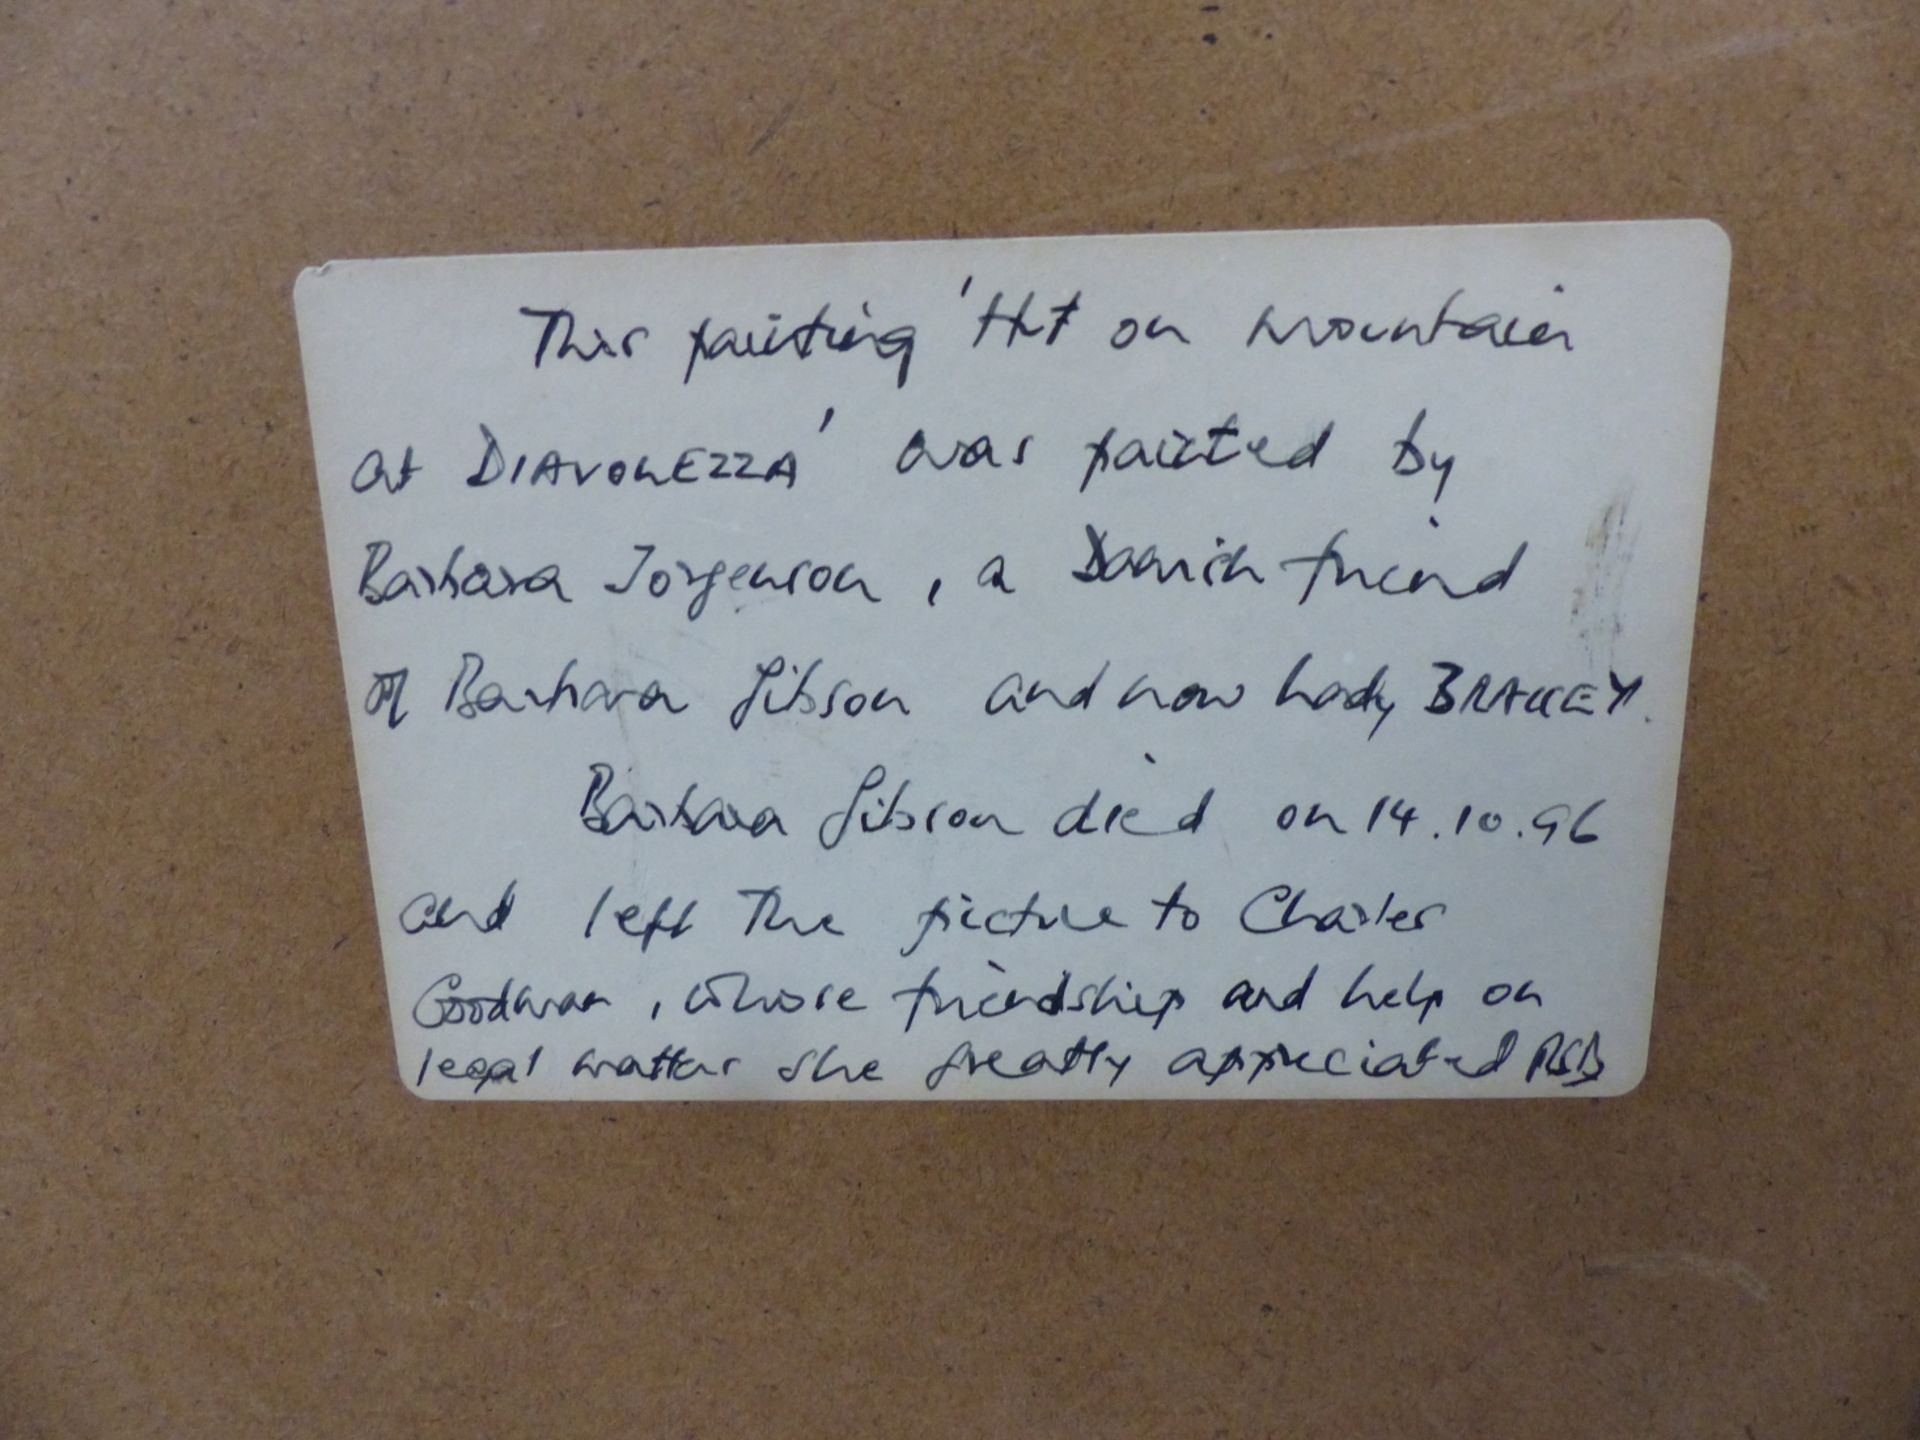 This painting 'Hut on mountain
at DIAVOLEZZA' was painted by
Barbara Jorgenson, a Danish friend
of Barbara Gibson and now Lady
Barbara Gibson died on 14.10.96
and left the picture to Charles
Goodman, whose friendship and help on
legal matters she greatly appreciated